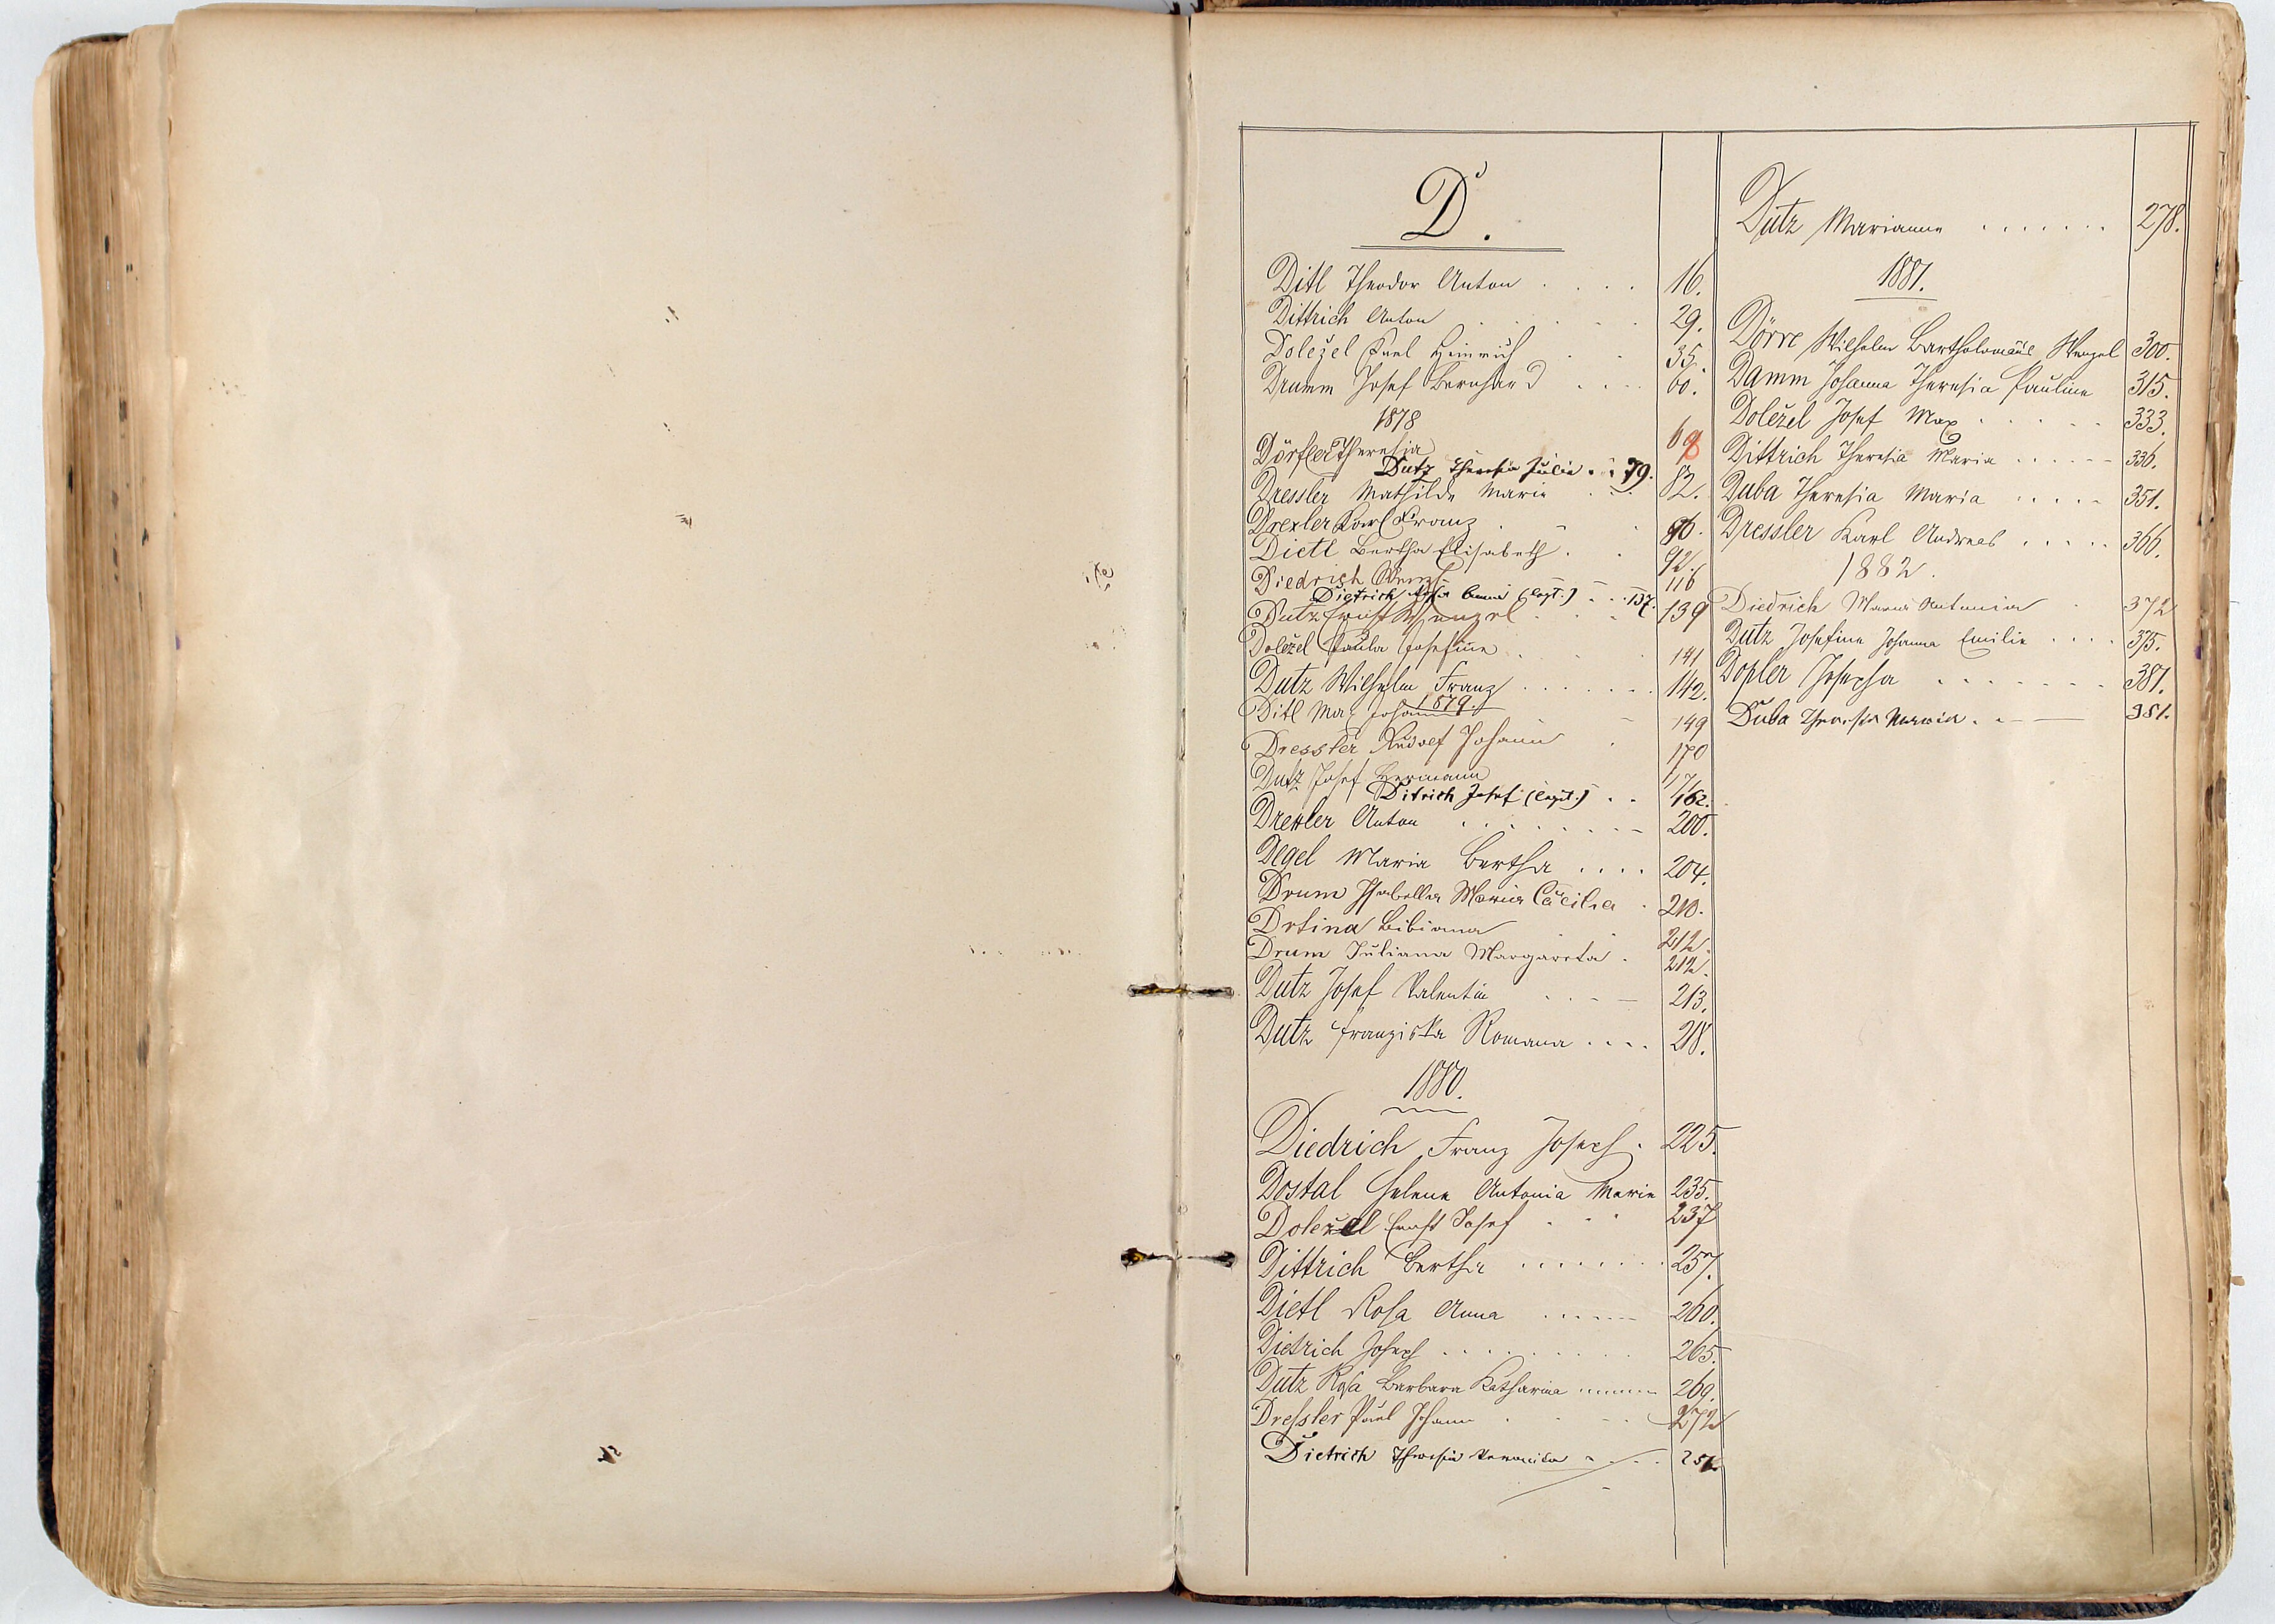 D.
Ditl Theodor Anton . . . . 16.
Dittrich Anton . . . . . 29.
Doležel Paul Heinrich . . 35.
Drumm Josef Bernhard . . . . 60.
1878
Dörfler Theresia 68
Dutz Theresia Julie . . 79.
Dressler Mathilde Marie . . . 82.
Drexler Karl Franz . . . 90.
Dietl Bertha Elisabeth . . 92.
Diedrich Wenzl 116
Dietrich Anna (legt.) . . . 137.
Dutz Ernst Wenzel . . . . 139
Doležel Paula Josefine . . . 141
Dutz Wilhelm Franz . . . . . . . 142.
1879.
Ditl Max Johann 149
Dressler Rudolf Johann . 170
Dutz Josef Hermann 171
Ditrich Josef (legit.) . . 162.
Drexler Anton . . . . . . . . 200.
Degel Maria Bertha . . . . 204.
Drum Isabella Maria Cäcilia . 210.
Drtina Bibiana 212.
Drum Juliana Margareta . 212.
Dutz Josef Valentin . . . . 213.
Dutz Franziska Romana . . . . 218.
1880.
Diedrich Franz Joseph . 225.
Dostal Helene Antonia Marie 235.
Dolezel Ernst Josef . . . 237
Dittrich Bertha . . . . . . . . 257.
Dietl Rosa Anna . . . . . . 260.
Dietrich Joseph . . . . . . . . . 265.
Dutz Rosa Barbara Katharina . . . . . . 269.
Dressler Paul Johann . . . . 272
Dietrich Theresia Veronika . . . .
Dutz Marianne . . . . . . . 278.
1881.
Dörre Wilhelm Bartholomäus Wenzel 300.
Damm Johanna Theresia Pauline 315.
Doležel Josef Max . . . . . . 333.
Dittrich Theresia Maria . . . . . . 336.
Duba Theresia Maria . . . . . 351.
Dressler Karl Andreas . . . . . 366.
1882.
Diedrich Maria Antonia . 372
Dutz Josefine Johanna Emilie . . . . 375.
Dopler Josepha . . . . . . . 381.
Duba Theresia Maria . . 351.